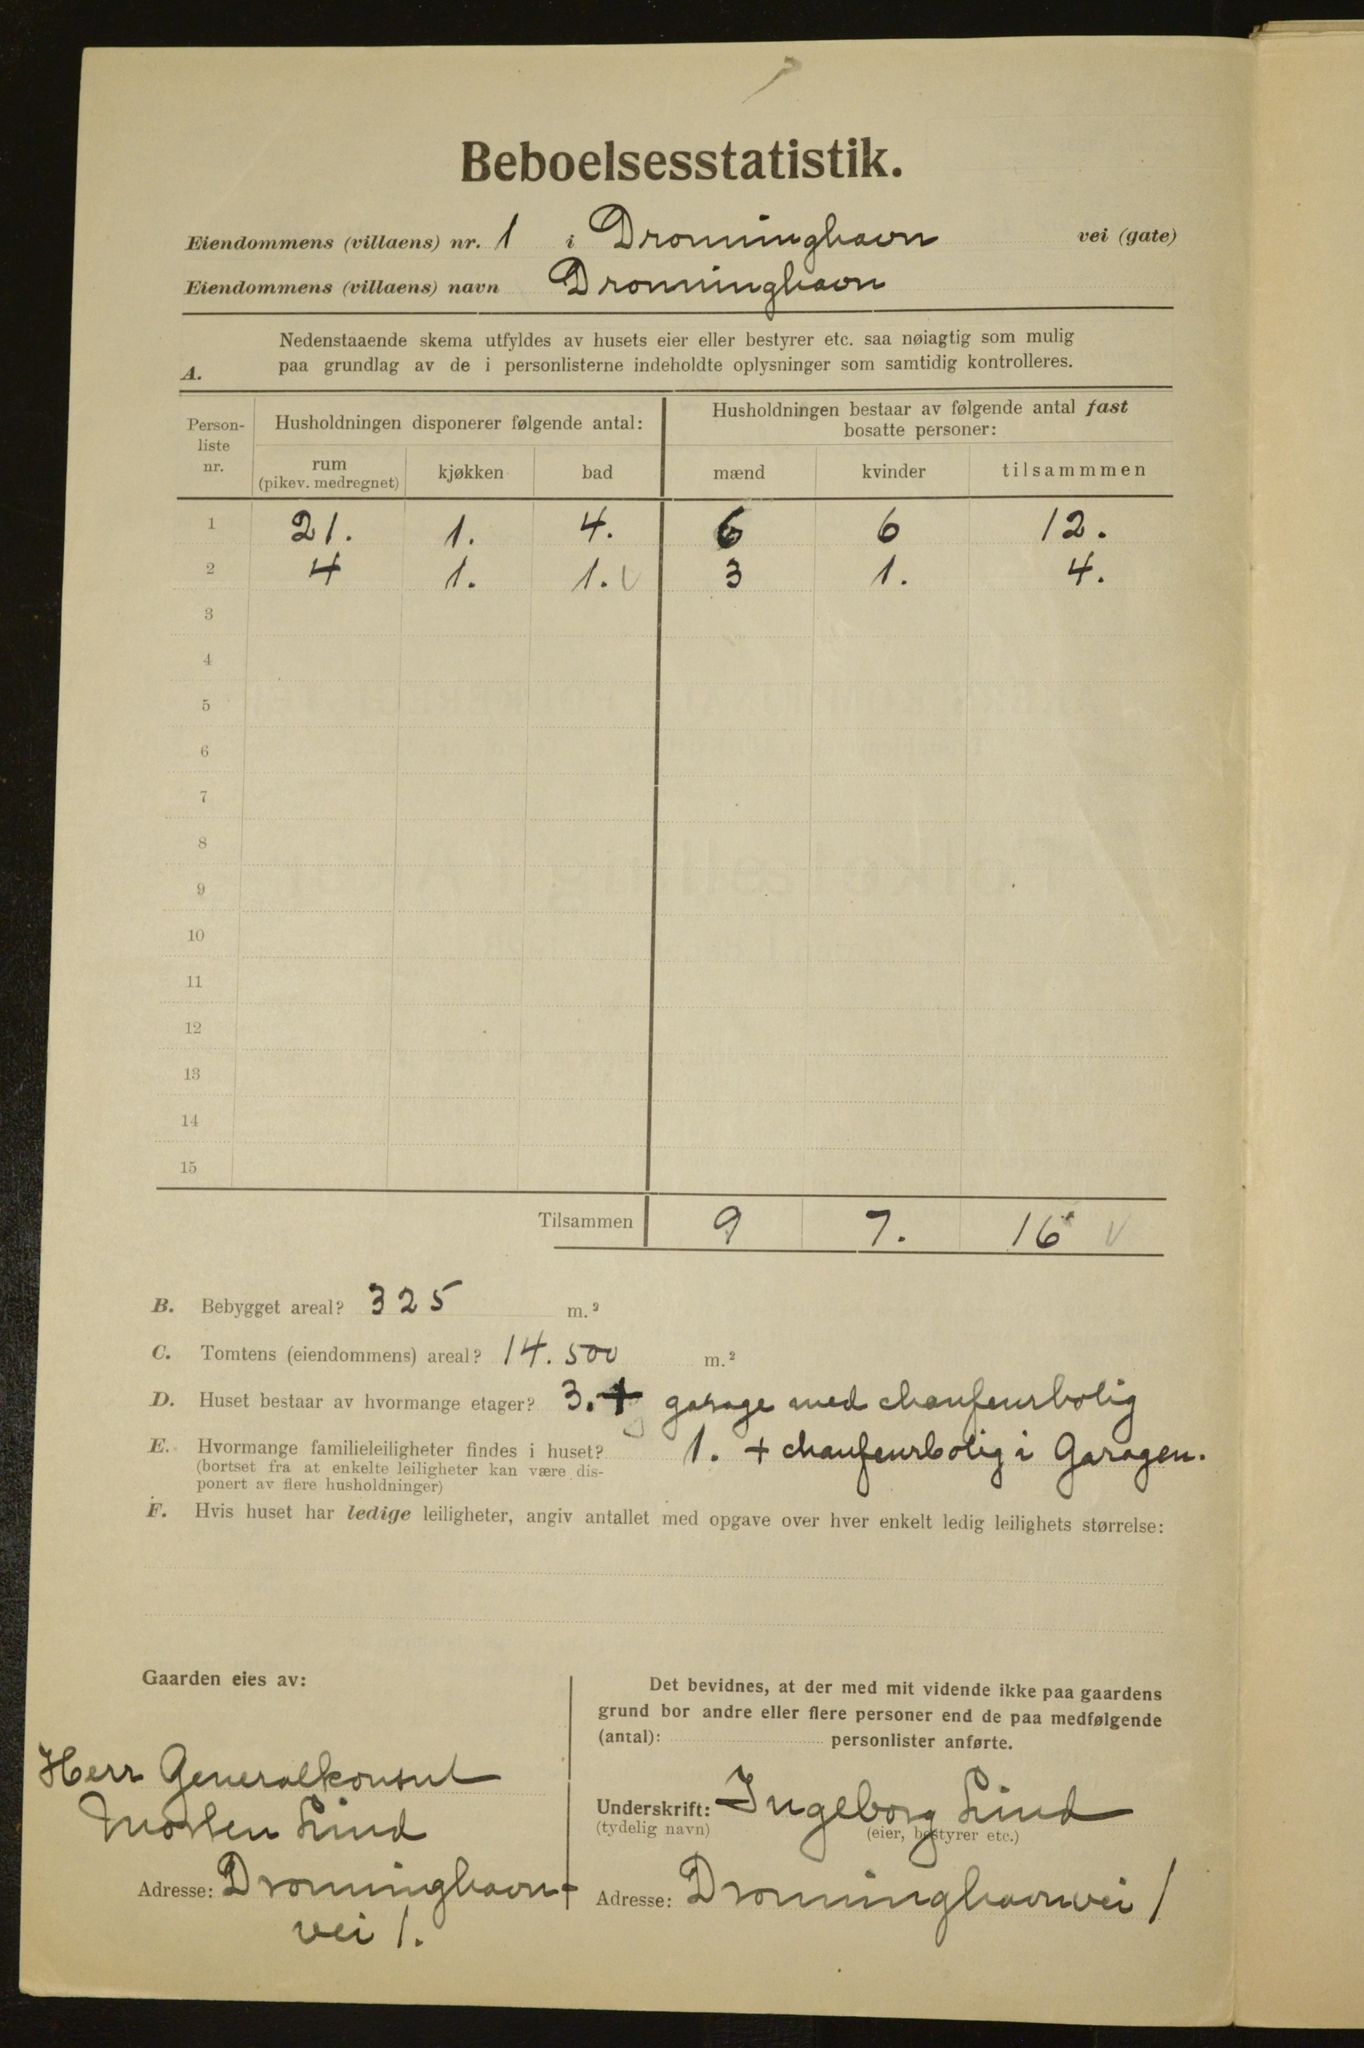 Beboelsesstatistik.
Eiendommens (villaens) nr. 1 i Dronninghavn vei (gate)
Eiendommens (villaens) navn Dronninghavn
A. Nedenstaaende skema utfyldes av husets eier eller bestyrer etc. saa nøiagtig som mulig
paa grundlag av de i personlisterne indeholdte oplysninger som samtidig kontrolleres.
Person-
liste
nr.
Husholdningen disponerer følgende antal:
Husholdningen bestaar av følgende antal fast
bosatte personer:
rum
(pikev. medregnet)
kjøkken bad mænd kvinder tilsammmen
1 21. 1. 4. 6 6 12.
2 4 1. 1. V 3 1. 4.
3
4
5
6
7
8
9
10
11
12
13
14
15
Tilsammen 9 7. 16 V
B. Bebygget areal? 325 m.²
C. Tomtens (eiendommens) areal? 14.500 m.²
D. Huset bestaar av hvormange etager? 3. + garage med chaufeurbolig
E. Hvormange familieleiligheter findes i huset? 1. + chaufeurbolig i Garagen.
(bortset fra at enkelte leiligheter kan være dis-
ponert av flere husholdninger)
F. Hvis huset har ledige leiligheter, angiv antallet med opgave over hver enkelt ledig leilighets størrelse:
Gaarden eies av:
Herr Generalkonsul
Morten Lind
Adresse: Dronninghavn-
vei 1.
Det bevidnes, at der med mit vidende ikke paa gaardens
grund bor andre eller flere personer end de paa medfølgende
(antal): personlister anførte.
Underskrift: Ingeborg Lind
(tydelig navn) (eier, bestyrer etc.)
Adresse: Dronninghavnvei 1